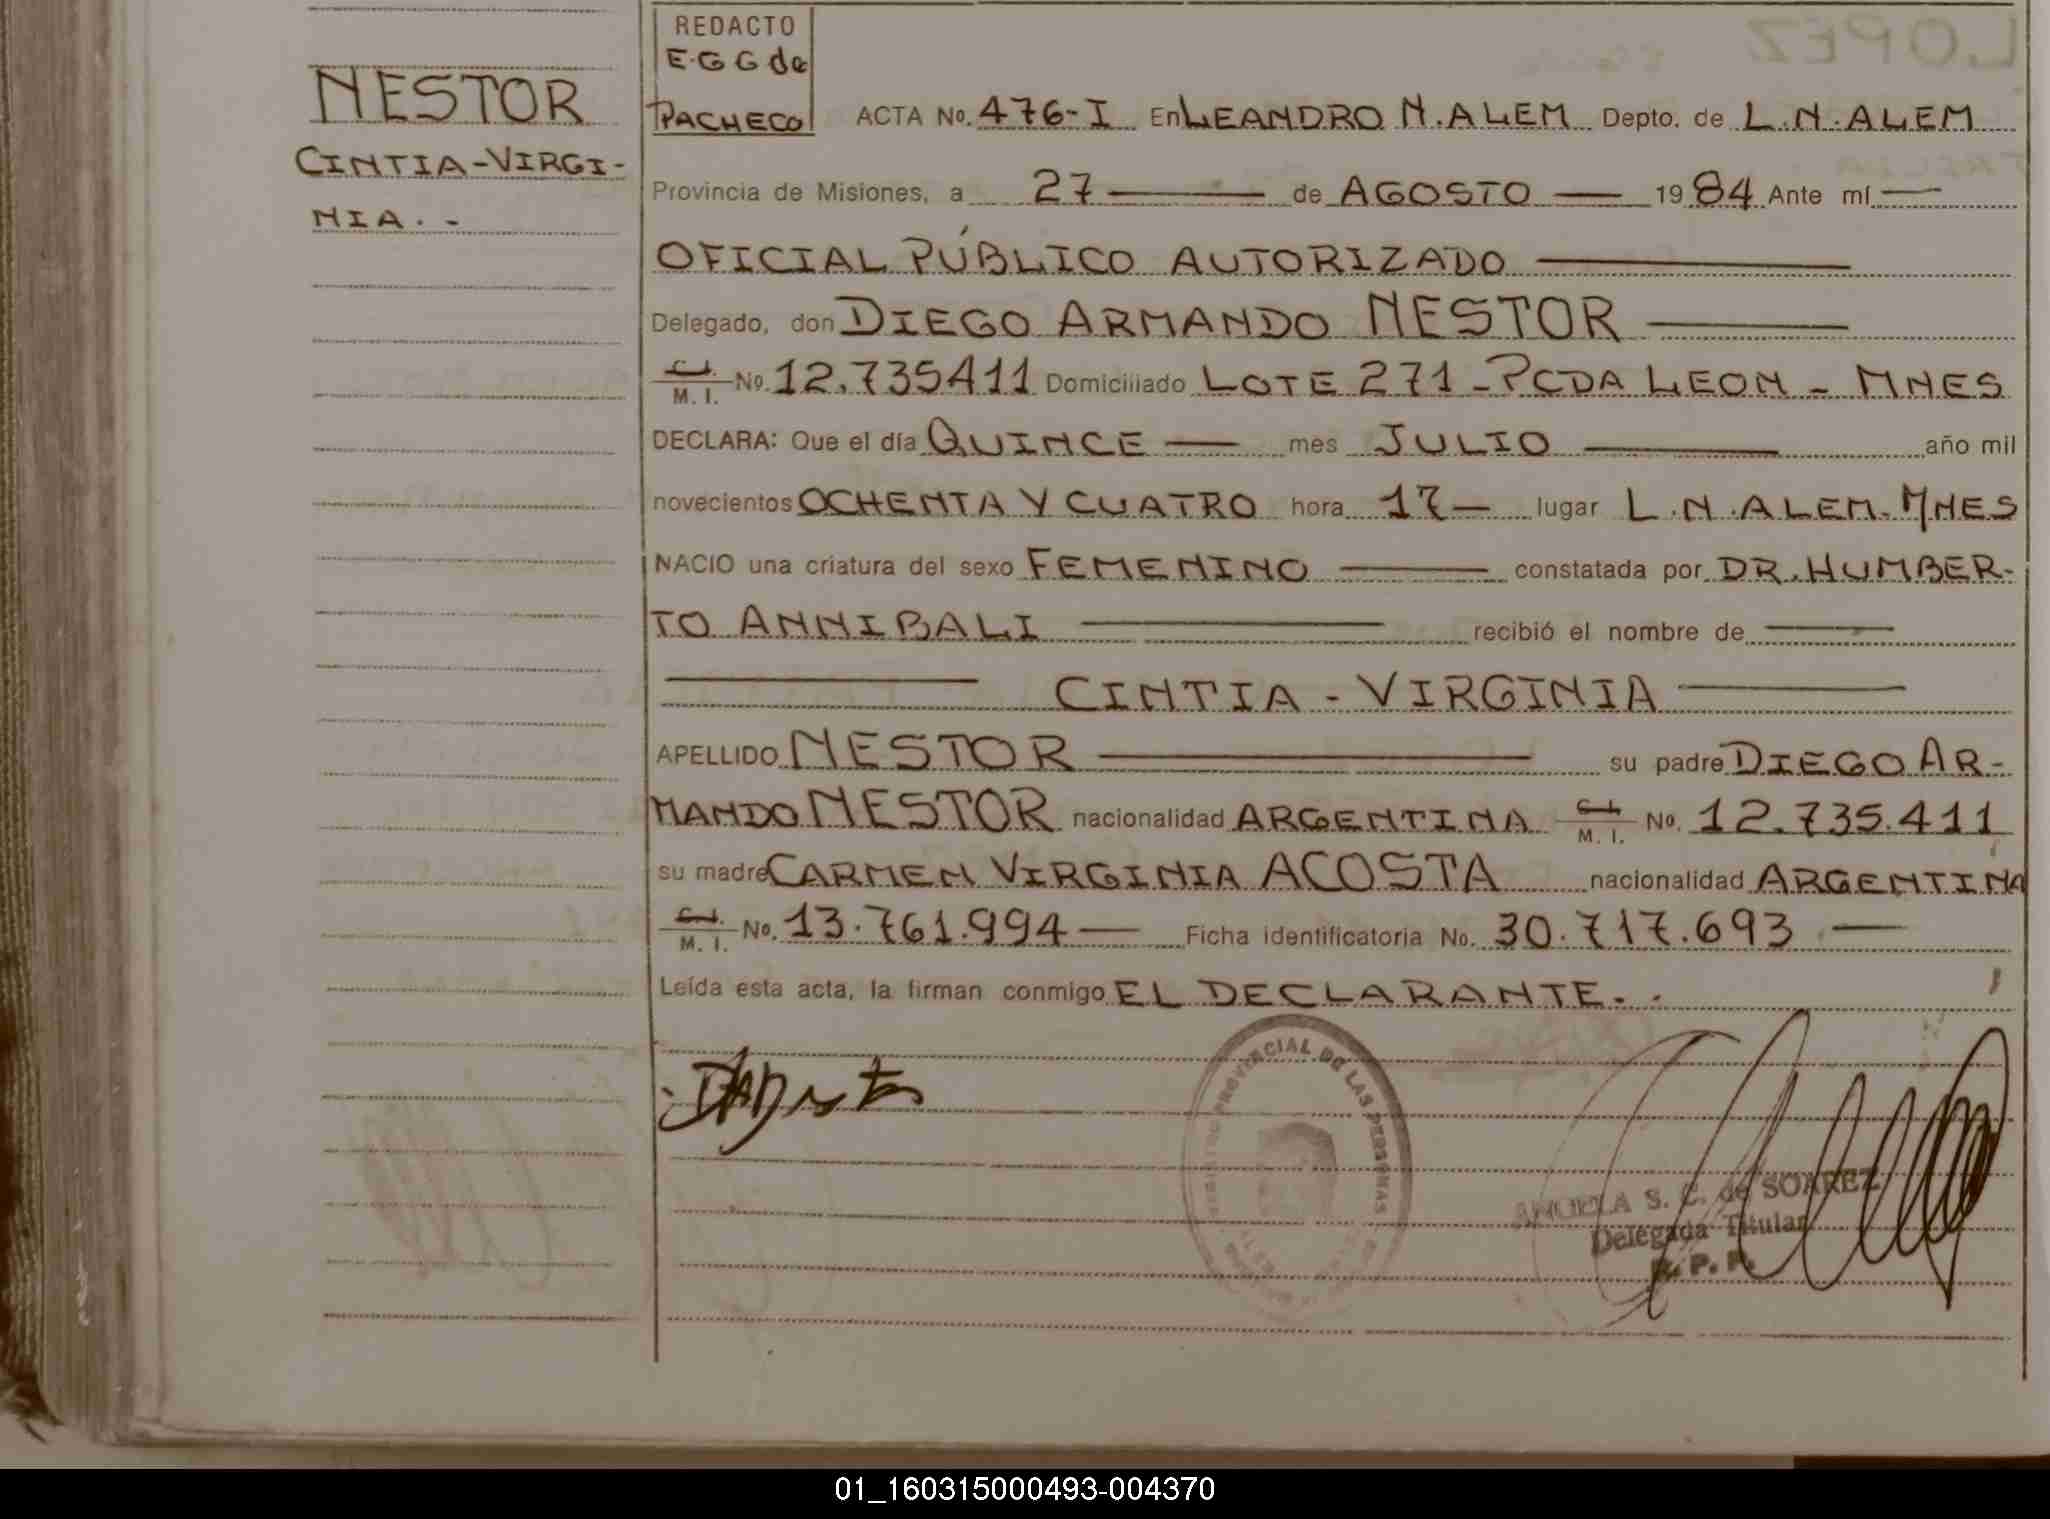 NESTOR
CINTIA-VIRGI-
NIA.-
REDACTO
E.G G de
PACHECO
ACTA No. 476-I En LEANDRO N. ALEM Depto. de L.N. ALEM
Provincia de Misiones, a 27 de AGOSTO 1984 Ante mí
OFICIAL PÚBLICO AUTORIZADO
Delegado, don DIEGO ARMANDO NESTOR
C.I. / M. I. No. 12.735411 Domiciliado LOTE 271 - PCDA LEON - MNES
DECLARA: Que el día QUINCE mes JULIO año mil
novecientos OCHENTA Y CUATRO hora 17 lugar L.N. ALEM. MNES
NACIO una criatura del sexo FEMENINO constatada por DR. HUMBER-
TO ANNIBALI recibió el nombre de
CINTIA - VIRGINIA
APELLIDO NESTOR su padre DIEGO AR-
MANDO NESTOR nacionalidad ARGENTINA C.I. / M. I. No. 12.735.411
su madre CARMEN VIRGINIA ACOSTA nacionalidad ARGENTINA
C.I. / M. I. No. 13.761.994 Ficha identificatoria No. 30.717.693
Leída esta acta, la firman conmigo EL DECLARANTE.
PROVINCIAL DE LAS PERSONAS
ANGELA S. C. de SOAREZ
Delegada Titular
R. P. P.
01_160315000493-004370